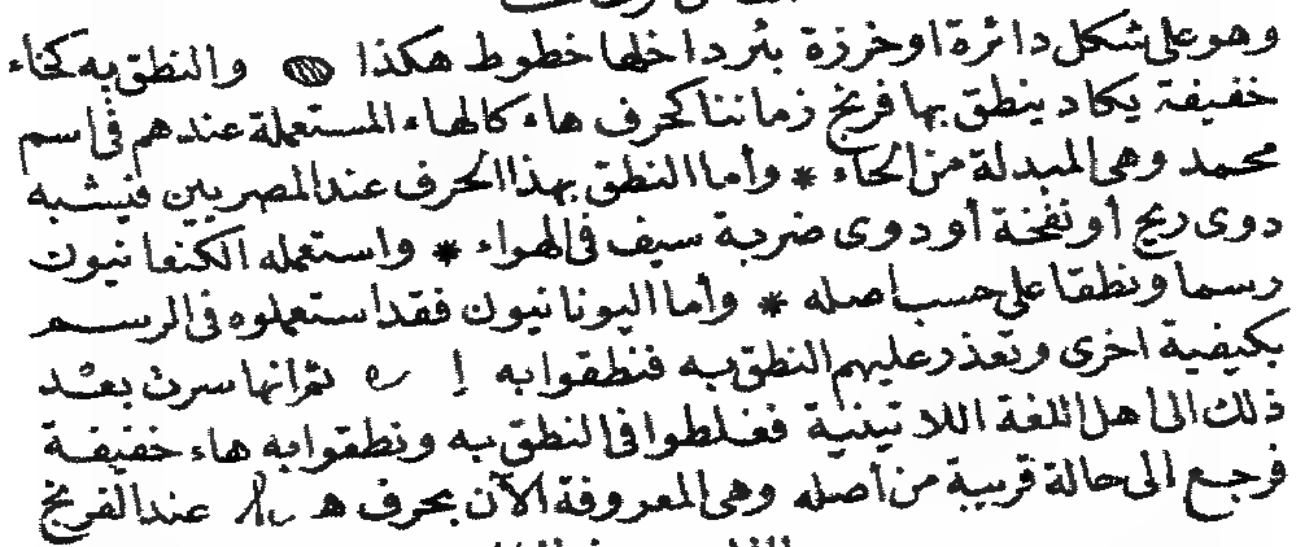 وهو على شكل دائرة او خرزة بئر داخلها خطوط هكذا والنطق به كخاء
خفيفة يكاد ينطق بها فرنج زماننا كحرف هاء كالهاء المستعملة عندهم فى اسم
محمد وهى المبدلة من الحاء * وأما النطق بهذا الحرف عند المصريين فيشبه
دوى ريح أو نفخة أو دوى ضربة سيف فى الهواء * واستعمله الكنعانيون
رسما ونطقا على حسب أصله * وأما اليونانيون فقد استعملوه فى الرسم
بكيفية اخرى وتعذر عليهم النطق به فنطقوا به إ e ثم انها سرت بعد
ذلك الى اهل اللغة اللاتينية فغلطوا فى النطق به ونطقوا به هاء خفيفة
فرجع الى حالة قريبة من أصله وهى المعروفة الآن بحرف هـ h عند الفرنج